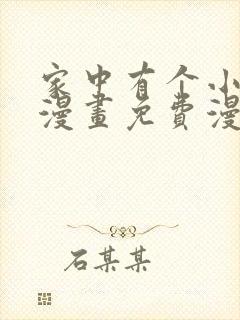 家中有个小
漫畫免費漫
石某某